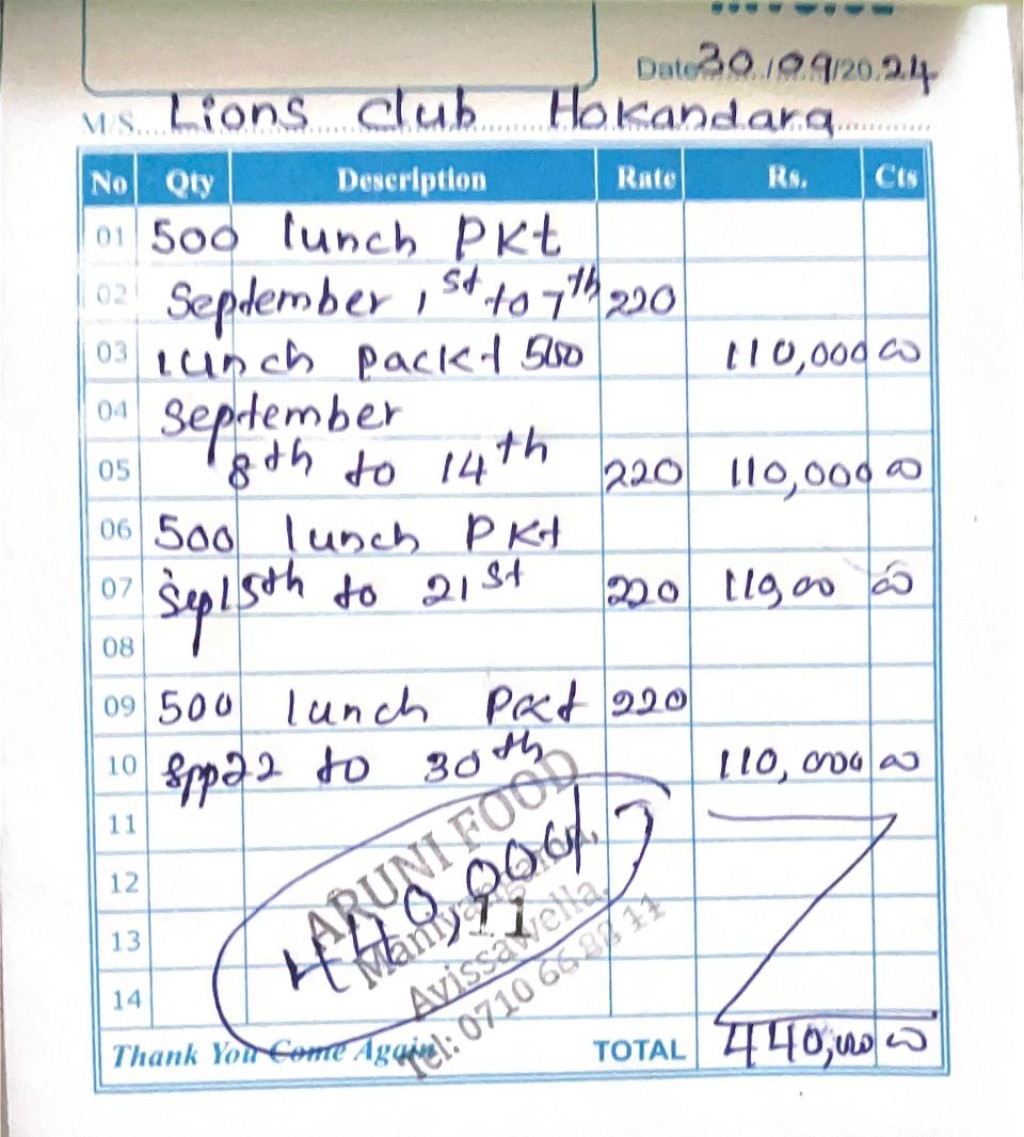 Date 30/09/2024
M/S. Lions Club Hokandara
No Qty Description Rate Rs. Cts
01 500 lunch PKt
02 September 1st to 7th 220
03 lunch packt 500 110,000 00
04 September
05 8th to 14th 220 110,000 00
06 500 lunch PKt
07 Sep 15th to 21st 220 110,00 00
08
09 500 lunch Pact 220
10 Sep 22 to 30th 110,000 00
11
12
13
14
ARUNI FOOD
440,000/
Avissawella.
Tel: 0710 66 88 11
Thank You Come Again TOTAL 440,000 00